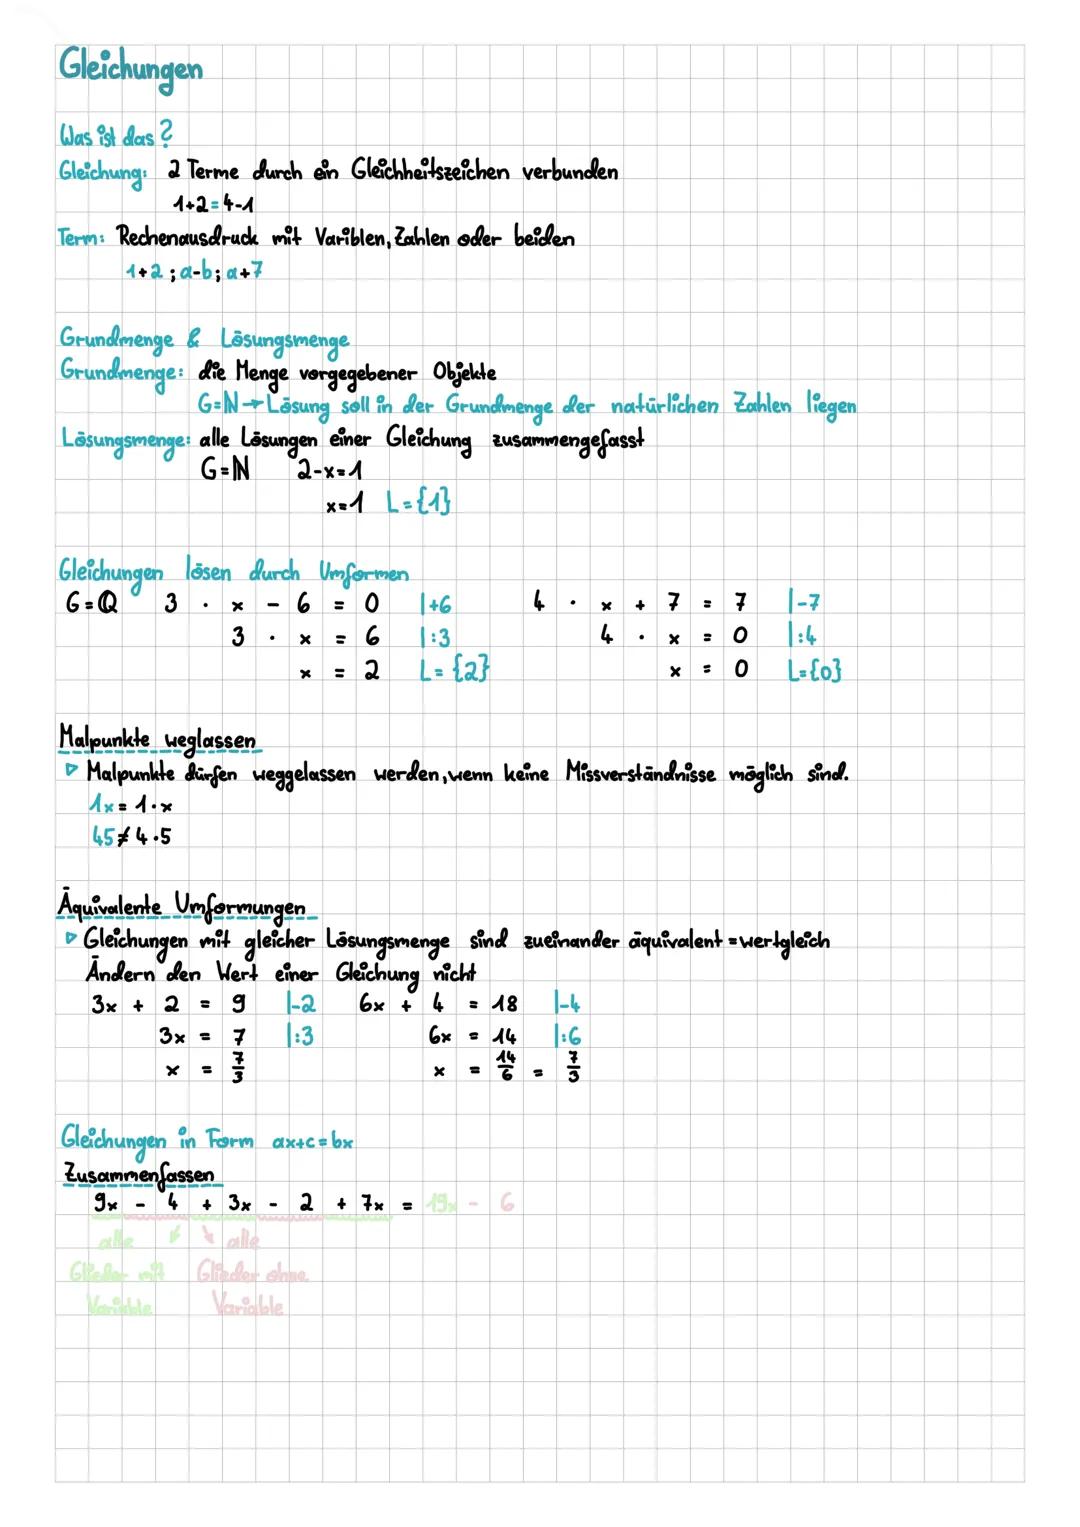 Gleichungen
Was ist das?
Gleichung: 2 Terme durch ein Gleichheitszeichen verbunden
1+2=4-1
Term: Rechenausdruck mit Variblen, Zahlen oder beiden
1+2 ; a-b; a+7
Grundmenge & Lösungsmenge
Grundmenge: die Menge vorgegebener Objekte
G=ℕ→Lösung soll in der Grundmenge der natürlichen Zahlen liegen
Lösungsmenge: alle Lösungen einer Gleichung zusammengefasst
G=ℕ 2-x=1
x=1 L={1}
Gleichungen lösen durch Umformen
G=ℚ 3 · x - 6 = 0 |+6 4 · x + 7 = 7 |-7
3 · x = 6 |:3 4 · x = 0 |:4
x = 2 L={2} x = 0 L={0}
Malpunkte weglassen
▷ Malpunkte dürfen weggelassen werden, wenn keine Missverständnisse möglich sind.
1x = 1·x
45≠4·5
Äquivalente Umformungen
▷ Gleichungen mit gleicher Lösungsmenge sind zueinander äquivalent = wertgleich
Ändern den Wert einer Gleichung nicht
3x + 2 = 9 |-2 6x + 4 = 18 |-4
3x = 7 |:3 6x = 14 |:6
x = 7/3 x = 14/6 = 7/3
Gleichungen in Form ax+c=bx
Zusammenfassen
9x - 4 + 3x - 2 + 7x = 19x - 6
alle alle
Glieder mit Glieder ohne
Variable Variable